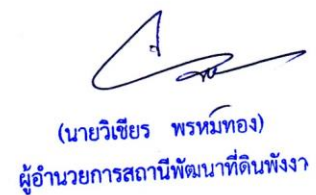 (นายวิเชียร พรหมทอง)
ผู้อำนวยการสถานีพัฒนาที่ดินพังงา